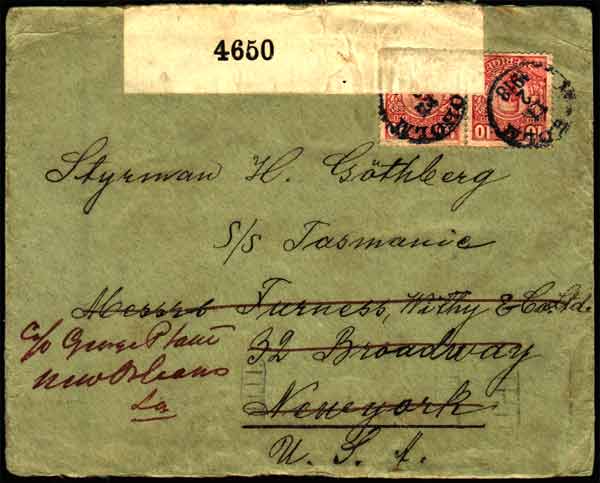 4650
1918
10
10
Styrman H. Göthberg
S/S Tasmanic
Messrs Furness, Withy & Co. Ltd.
32 Broadway
Newyork
U. S. A.
c/o George Plant
New Orleans
La